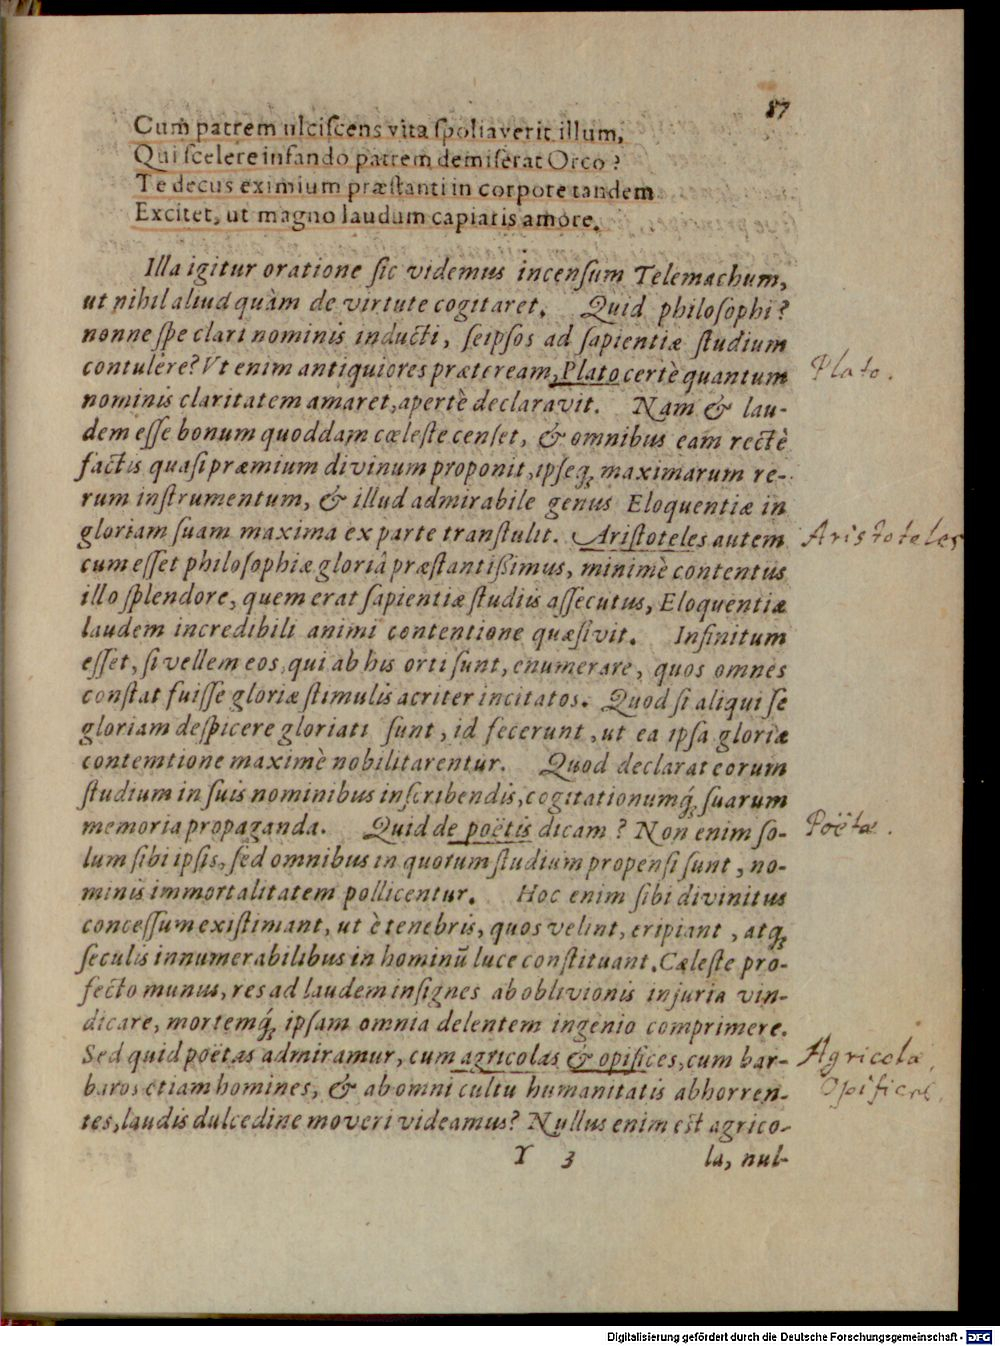 87
Cum patrem ulciſcens vita ſpoliaverit illum,
Qui ſcelere infando patrem demiſerat Orco?
Te decus eximium præſtanti in corpore tandem
Excitet, ut magno laudum capiatis amore.
Illa igitur oratione ſic videmus incenſum Telemachum,
ut nihil aliud quàm de virtute cogitaret. Quid philoſophi?
nonne ſpe clari nominis inducti, ſeipſos ad ſapientiæ ſtudium
contulêre? Vt enim antiquiores præteream, Plato certè quantum
Plato.
nominis claritatem amaret, apertè declaravit. Nam & lau-
dem eſſe bonum quoddam cœleſte cenſet, & omnibus eam rectè
factis quaſi præmium divinum proponit, ipſeq; maximarum re-
rum inſtrumentum, & illud admirabile genus Eloquentiæ in
gloriam ſuam maxima ex parte tranſtulit. Ariſtoteles autem
Aristoteles
cum eſſet philoſophiæ gloriâ præſtantiſſimus, minimè contentus
illo ſplendore, quem erat ſapientiæ ſtudiis aſſecutus, Eloquentiæ
laudem incredibili animi contentione quæſivit. Infinitum
eſſet, ſi vellem eos, qui ab his orti ſunt, enumerare, quos omnes
conſtat fuiſſe gloriæ ſtimulis acriter incitatos. Quod ſi aliqui ſe
gloriam deſpicere gloriati ſunt, id fecerunt, ut ea ipſa gloriæ
contemtione maximè nobilitarentur. Quod declarat eorum
ſtudium in ſuis nominibus inſcribendis, cogitationumq́; ſuarum
memoria propaganda. Quid de poëtis dicam? Non enim ſo-
Poëtæ.
lum ſibi ipſis, ſed omnibus in quorum ſtudium propenſi ſunt, no-
minis immortalitatem pollicentur. Hoc enim ſibi divinitus
conceſſum exiſtimant, ut è tenebris, quos velint, eripiant, atq;
ſeculis innumerabilibus in hominũ luce conſtituant. Cæleſte pro-
fecto munus, res ad laudem inſignes ab oblivionis injuria vin-
dicare, mortemq́; ipſam omnia delentem ingenio comprimere.
Sed quid poëtas admiramur, cum agricolas & opifices, cum bar-
Agricolæ,
baros etiam homines, & ab omni cultu humanitatis abhorren-
Opifices.
tes, laudis dulcedine moveri videamus? Nullus enim eſt agrico-
Y 3 la, nul-
Digitalisierung gefördert durch die Deutsche Forschungsgemeinschaft - DFG